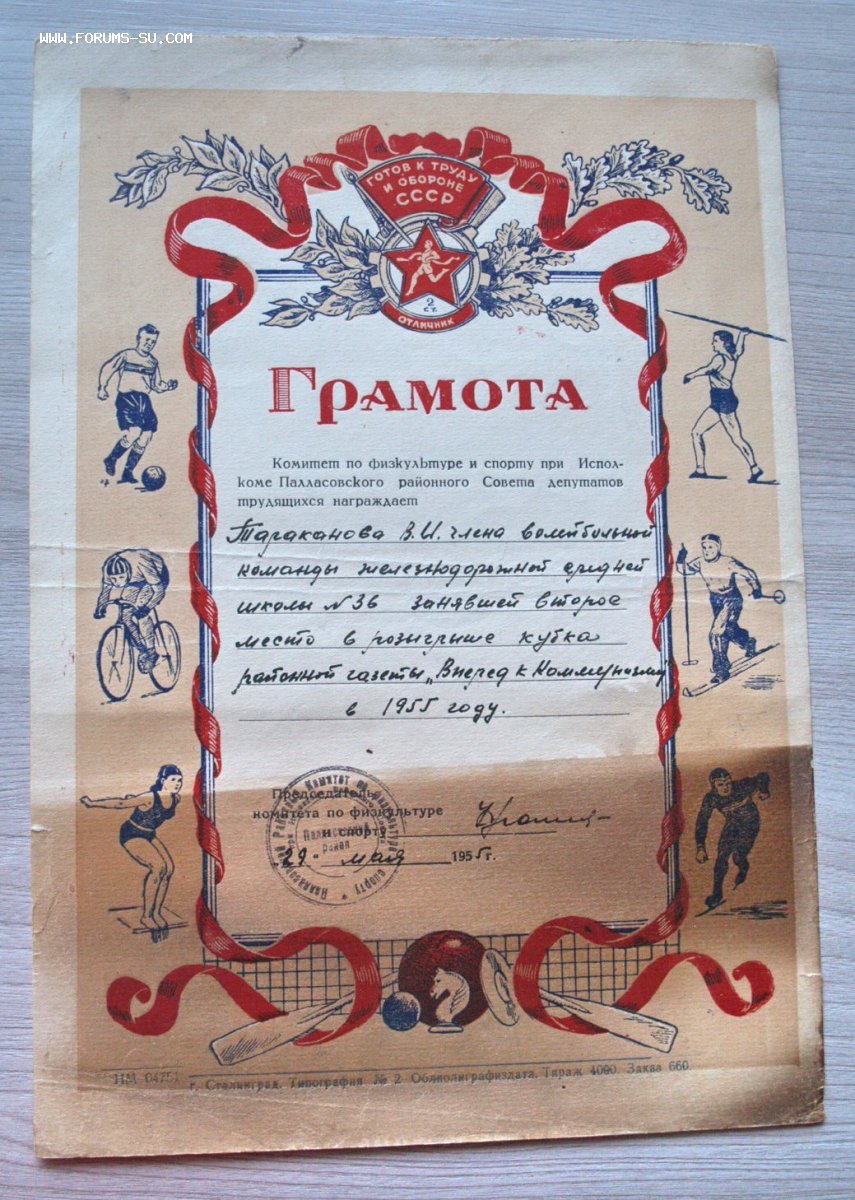 WWW.FORUMS-SU.COM
ГОТОВ К ТРУДУ
И ОБОРОНЕ
СССР
2
СТ.
ОТЛИЧНИК
ГРАМОТА
Комитет по физкультуре и спорту при Испол-
коме Палласовского районного Совета депутатов
трудящихся награждает
Тараканова В.И. члена волейбольной
команды железнодорожной средней
школы №36 занявшей второе
место в розыгрыше кубка
районной газеты „Вперед к Коммунизму"
в 1955 году.
Председатель
комитета по физкультуре
и спорту
29 мая 1955 г.
Палласовский
район
НМ 04751 г. Сталинград. Типография № 2 Облполиграфиздата. Тираж 4000. Заказ 660.